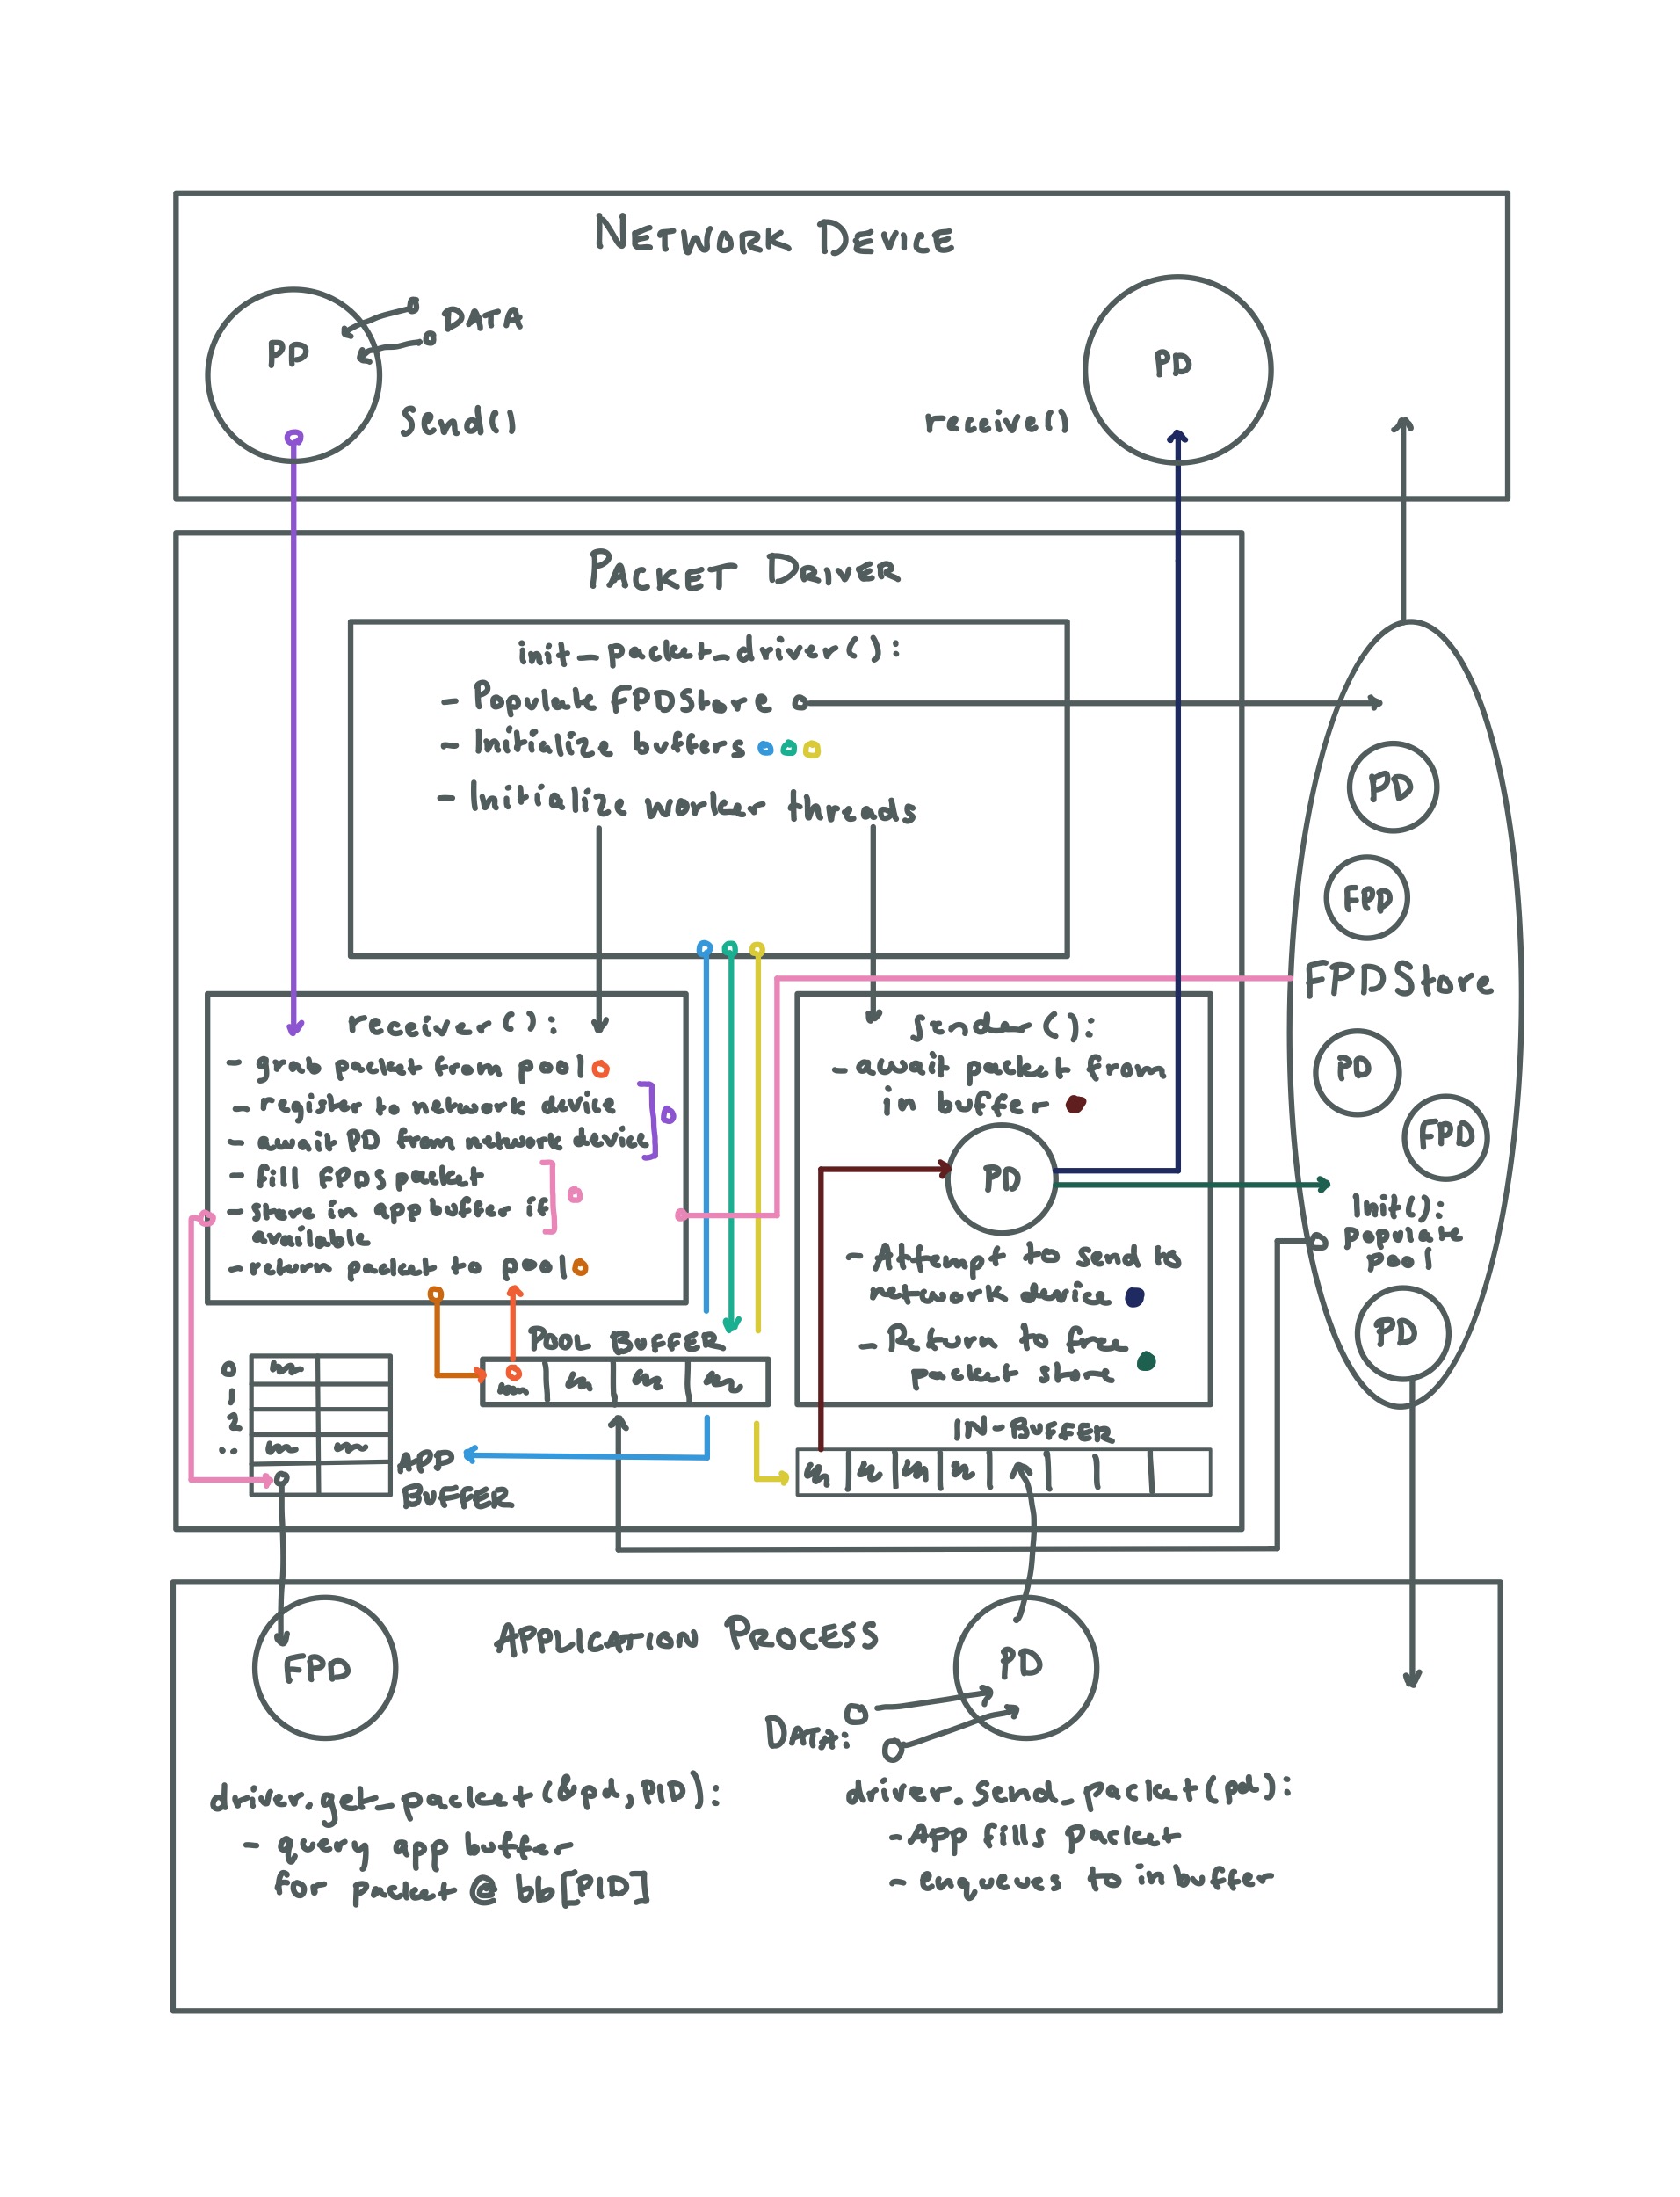 NETWORK DEVICE
PD
DATA
Send()
receive()
PD
PACKET DRIVER
init_packet_driver():
- Populate FPDStore
- Initialize buffers
- Initialize worker threads
PD
FPD
FPDStore
PD
FPD
Init():
populate
pool
PD
receiver():
- grab packet from pool
- register to network device
- await PD from network device
- fill FPDS packet
- store in app buffer if
available
- return packet to pool
sender():
- await packet from
in buffer
PD
- Attempt to send to
network device
- Return to free
packet store
POOL BUFFER
0
1
2
..
APP
BUFFER
IN-BUFFER
APPLICATION PROCESS
FPD
PD
DATA:
driver.get_packet(&pd, PID):
- query app buffer
for packet @ bb[PID]
driver.send_packet(pd):
- App fills packet
- enqueues to in buffer